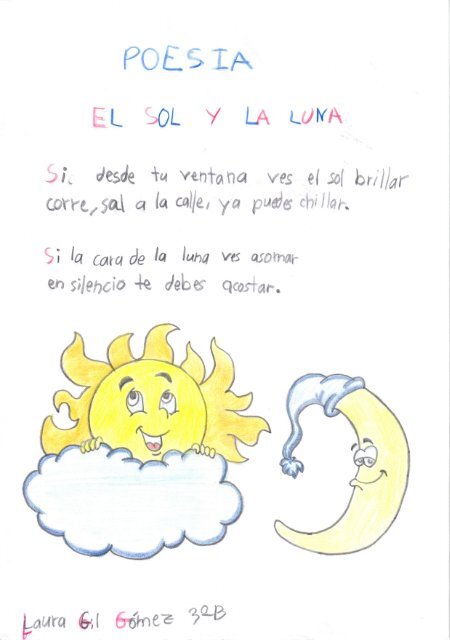 POESIA
EL SOL Y LA LUNA
Si desde tu ventana ves el sol brillar
corre, sal a la calle, ya puedes chillar.
Si la cara de la luna ves asomar
en silencio te debes acostar.
Laura Gil Gómez 3ºB